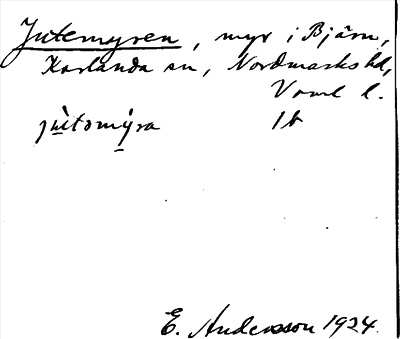 Jutemyren, myr i Bjärn,
Karlanda sn, Nordmarks hd,
Vrml l.
jùtomýra 1b
E. Andersson 1924.